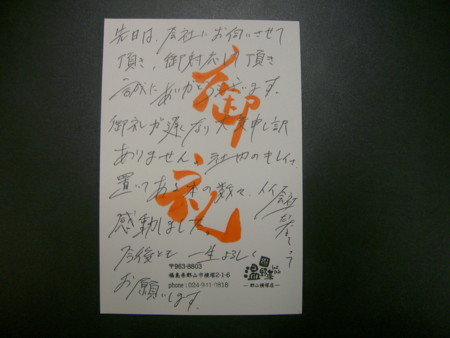 先日は、会社にお伺いさせて
頂き、御対応して頂き
誠にありがとうございます。
御礼が遅くなり大変申し訳
ありません。社内のキレイで
置いてある本の数々、イイ会社
だなぁって
感動しました。
今後とも一生よろしく
お願いします。
御礼
〒963-8803
福島県郡山市横塚2-1-6
phone : 024-941-0818
温野菜
郡山横塚店